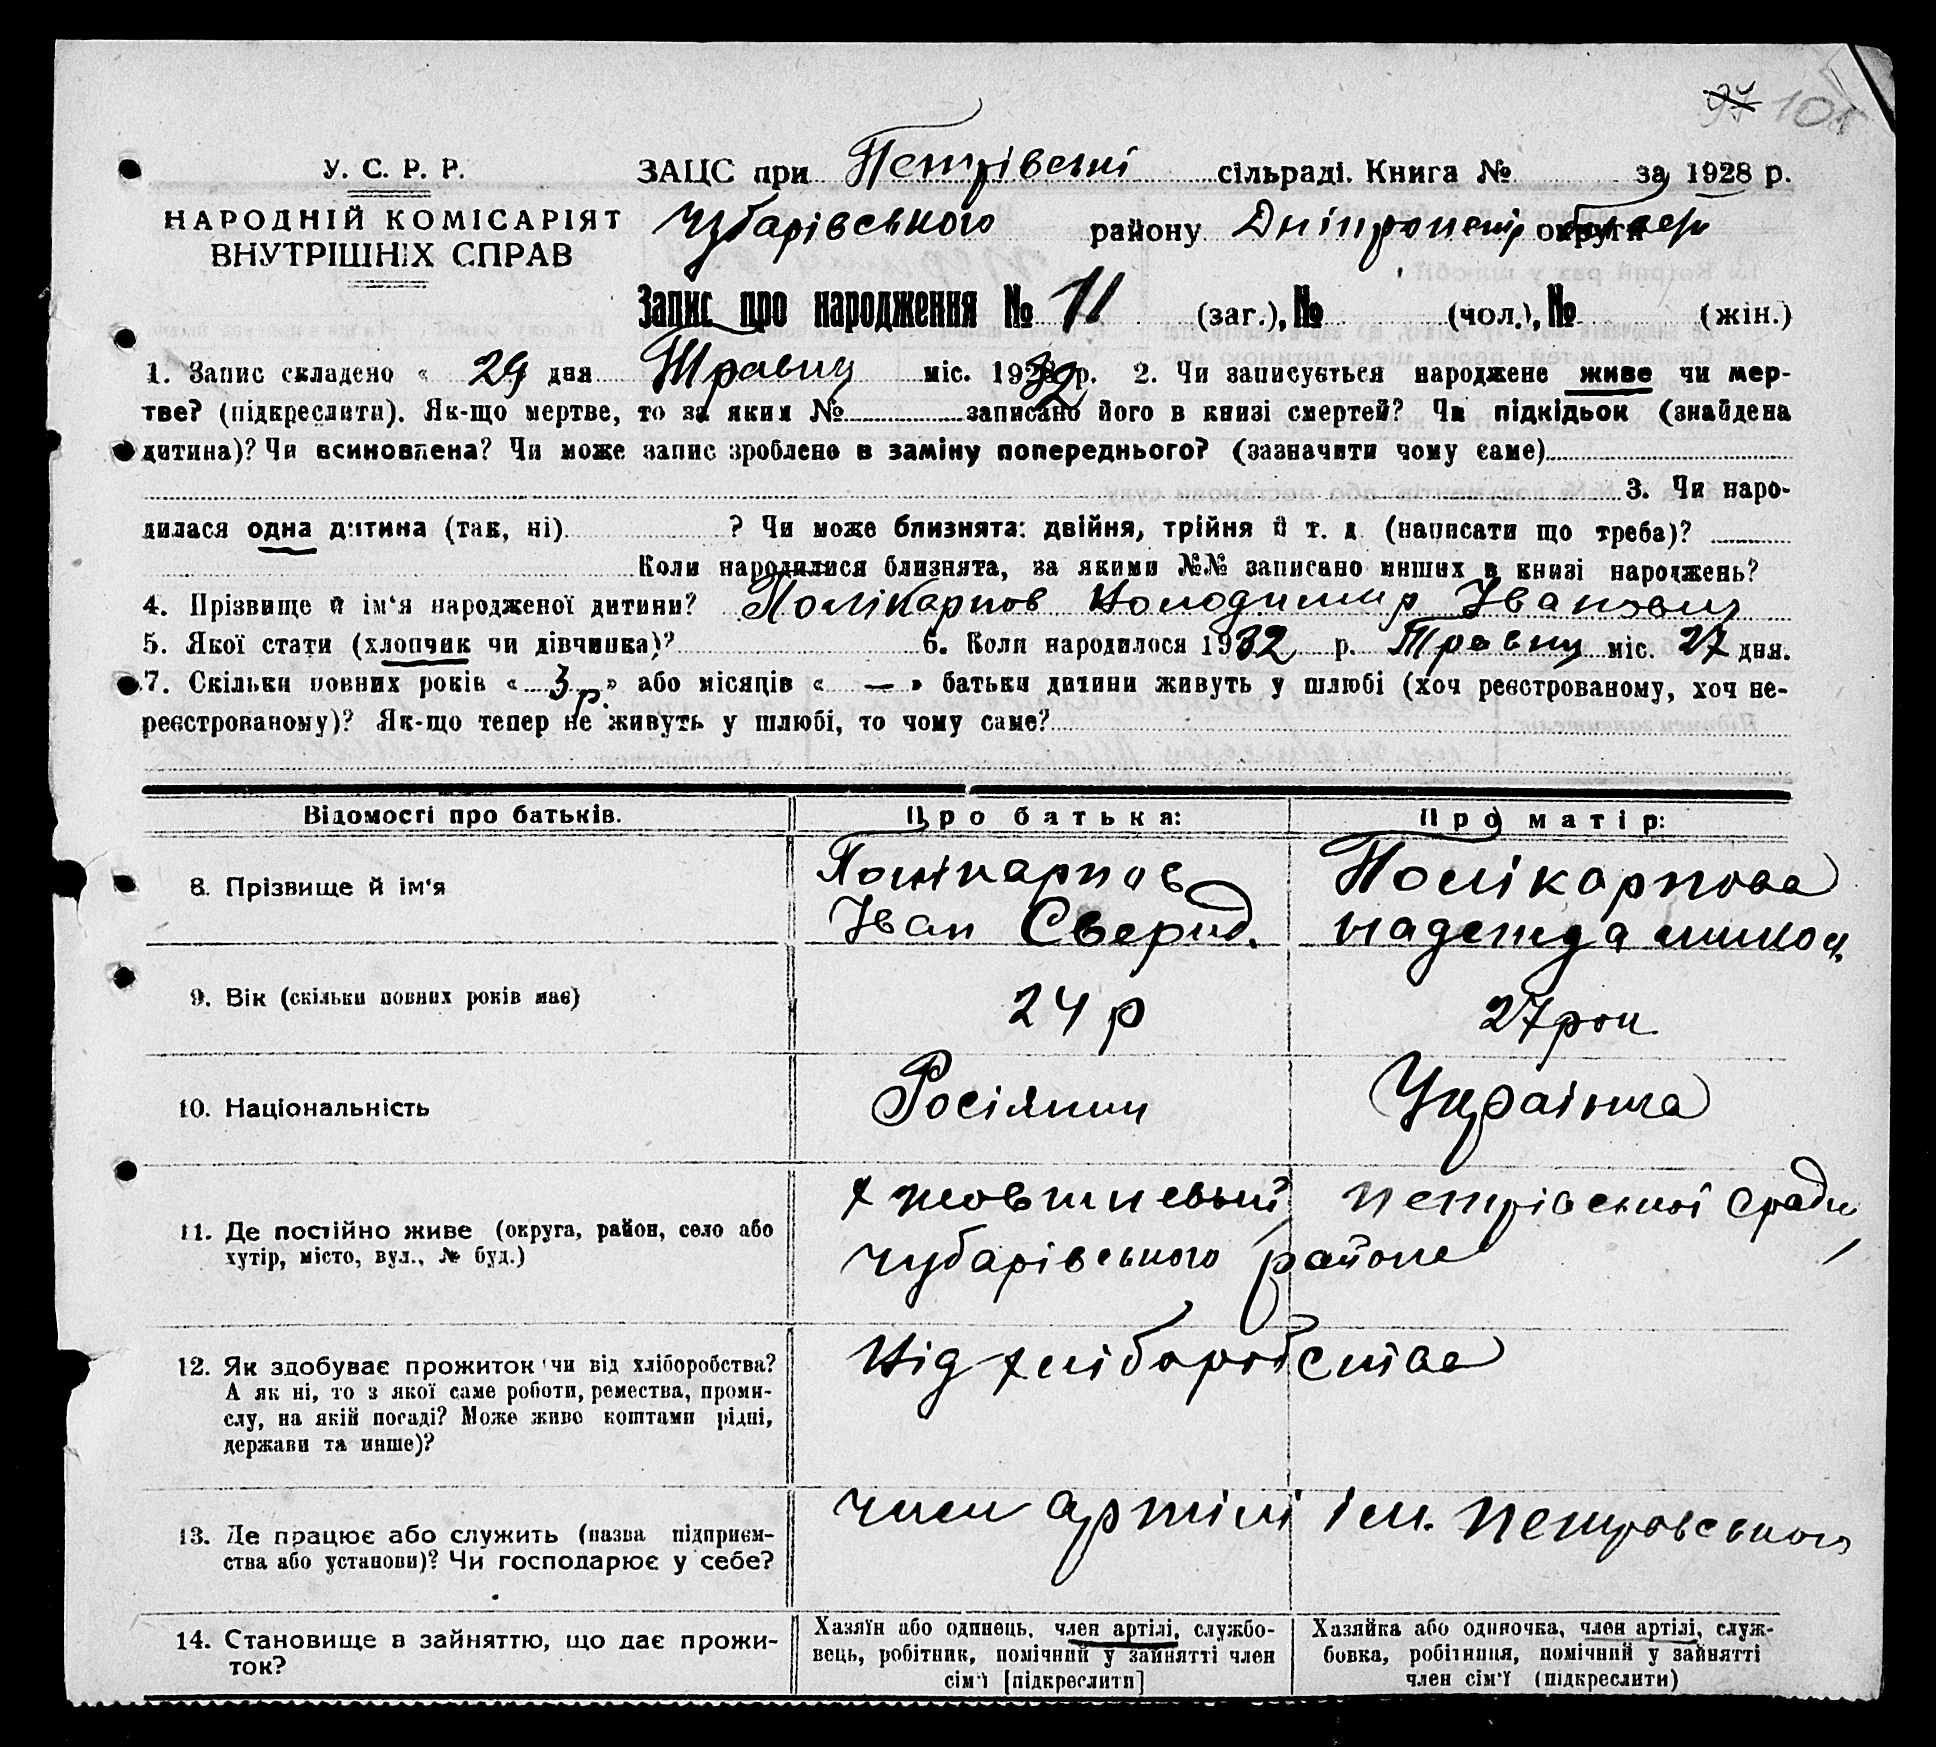 97 101
У. С. Р. Р.
НАРОДНІЙ КОМІСАРІЯТ
ВНУТРІШНІХ СПРАВ
ЗАЦС при Петрівській сільраді. Книга № за 1928 р.
Чубарівського району Дніпропетр округи
Запис про народження № 11 (заг.), № (чол.), № (жін.)
1. Запис складено « 29 дня Травня міс. 1932 р. 2. Чи записується народжене живе чи мер-
тве? (підкреслити). Як-що мертве, то за яким № записано його в книзі смертей? Чи підкідьок (знайдена
дитина)? Чи всиновлена? Чи може запис зроблено в заміну попереднього? (зазначити чому саме)
3. Чи наро-
дилася одна дитина (так, ні) ? Чи може близнята: двійня, трійня й т. д (написати що треба)?
Коли народилися близнята, за якими №№ записано инших в книзі народжень?
4. Прізвище й ім'я народженої дитини? Полікарпов Володимир Іванович
5. Якої стати (хлопчик чи дівчинка)? 6. Коли народилося 1932 р. Травня міс. 27 дня.
7. Скільки повних років « 3 р. » або місяців « — » батьки дитини живуть у шлюбі (хоч реєстрованому, хоч не-
реєстрованому)? Як-що тепер не живуть у шлюбі, то чому саме?
Відомості про батьків. Про батька: Про матір:
8. Прізвище й ім'я
Полікарпов
Іван Сверид.
Полікарпова
Надежда Микол.
9. Вік (скільки повних років має) 24 р 27 рок
10. Національність Росіянин Українка
11. Де постійно живе (округа, район, село або
хутір, місто, вул., № буд.)
х Жовтневый Петрівської сради
Чубарівського района
12. Як здобуває прожиток чи від хліборобства?
А як ні, то з якої саме роботи, ремества, проми-
слу, на якій посаді? Може живе коштами рідні,
держави та инше)?
Від хліборобства
13. Де працює або служить (назва підприєм-
ства або установи)? Чи господарює у себе?
член артілі ім. Петровського
14. Становище в зайняттю, що дає прожи-
ток?
Хазяїн або одинець, член артілі, службо-
вець, робітник, помічний у зайнятті член
сім'ї [підкреслити]
Хазяйка або одиночка, член артілі, служ-
бовка, робітниця, помічний у зайнятті
член сім'ї (підкреслити)